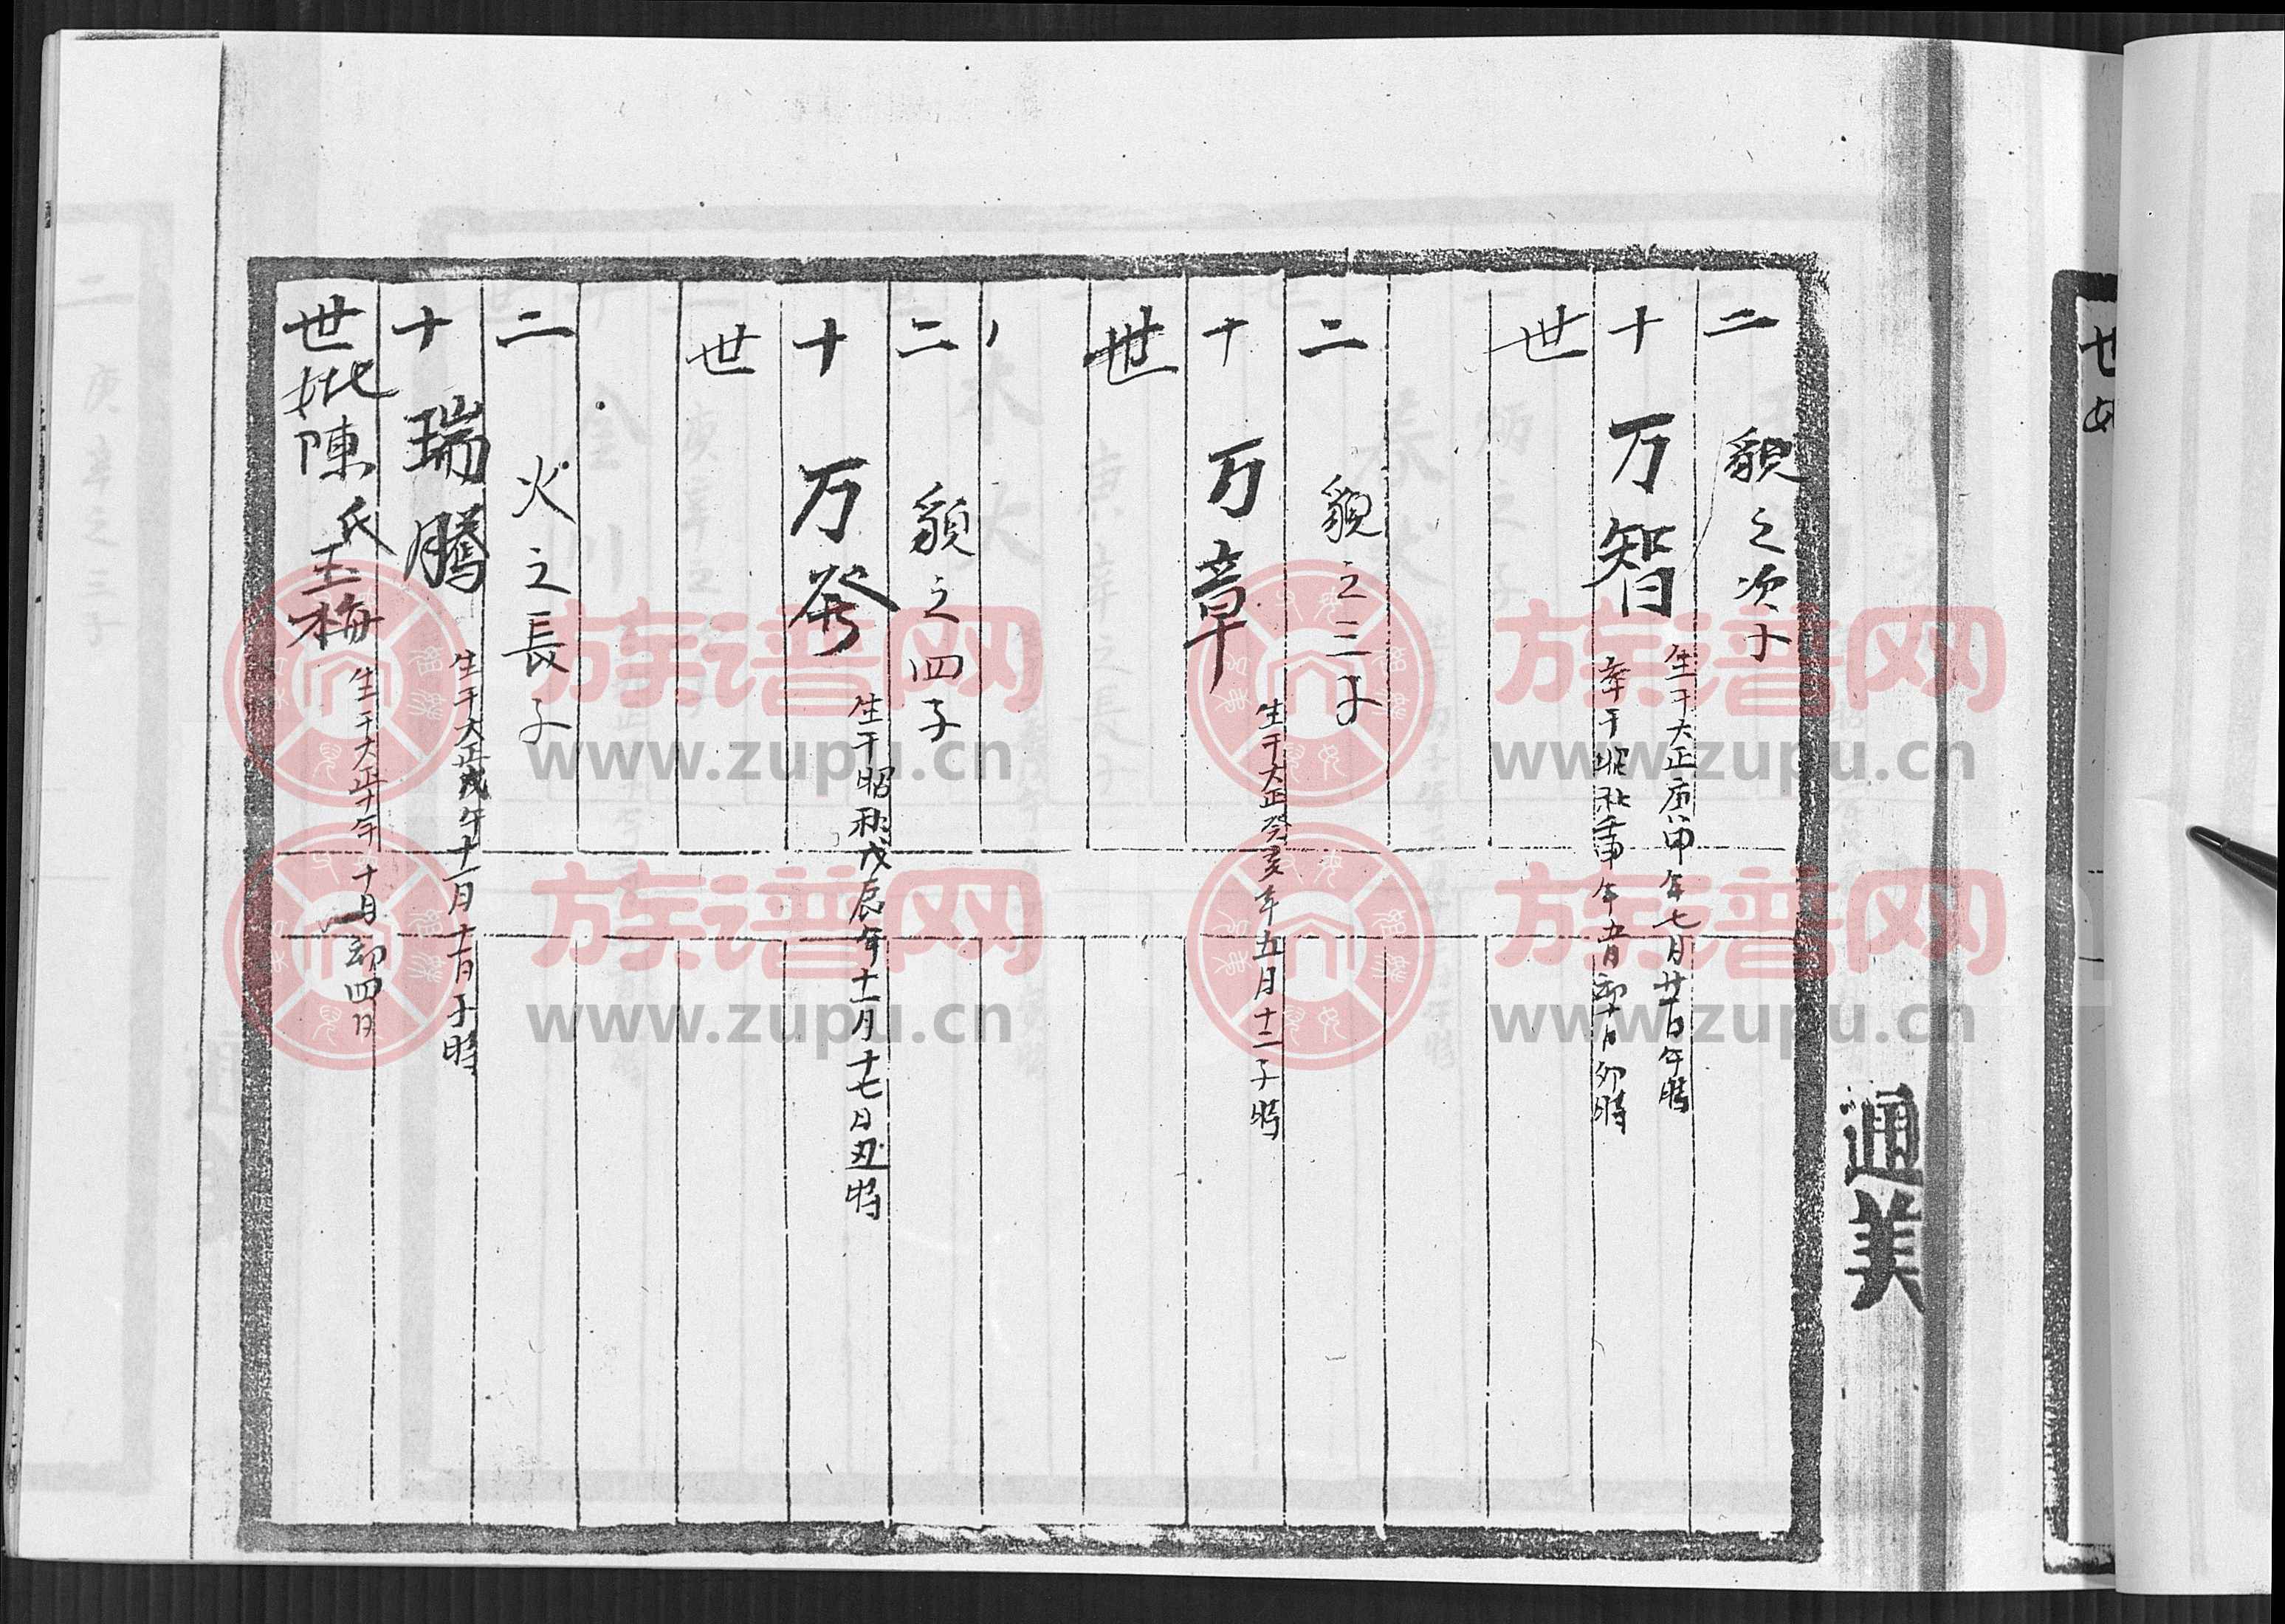 通美
二 貌之次子
十 万智 生于大正庚申年七月廿一日午時
卒于昭和 年五月初十日卯時
世
二 貌之三子
十 万章 生于大正癸亥年五月十二子時
世
二 貌之四子
十 万癸 生于昭和戊辰年十一月十七日丑時
世
二 火之長子
十 瑞騰 生于大正戊午十一月十一日子時
世 妣陳氏玉梅 生于大正十年十月初四日
族谱网
www.zupu.cn
族谱网
www.zupu.cn
族谱网
www.zupu.cn
族谱网
www.zupu.cn